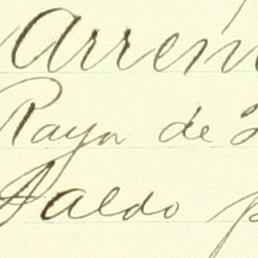 Arren
Raya de
Saldo p